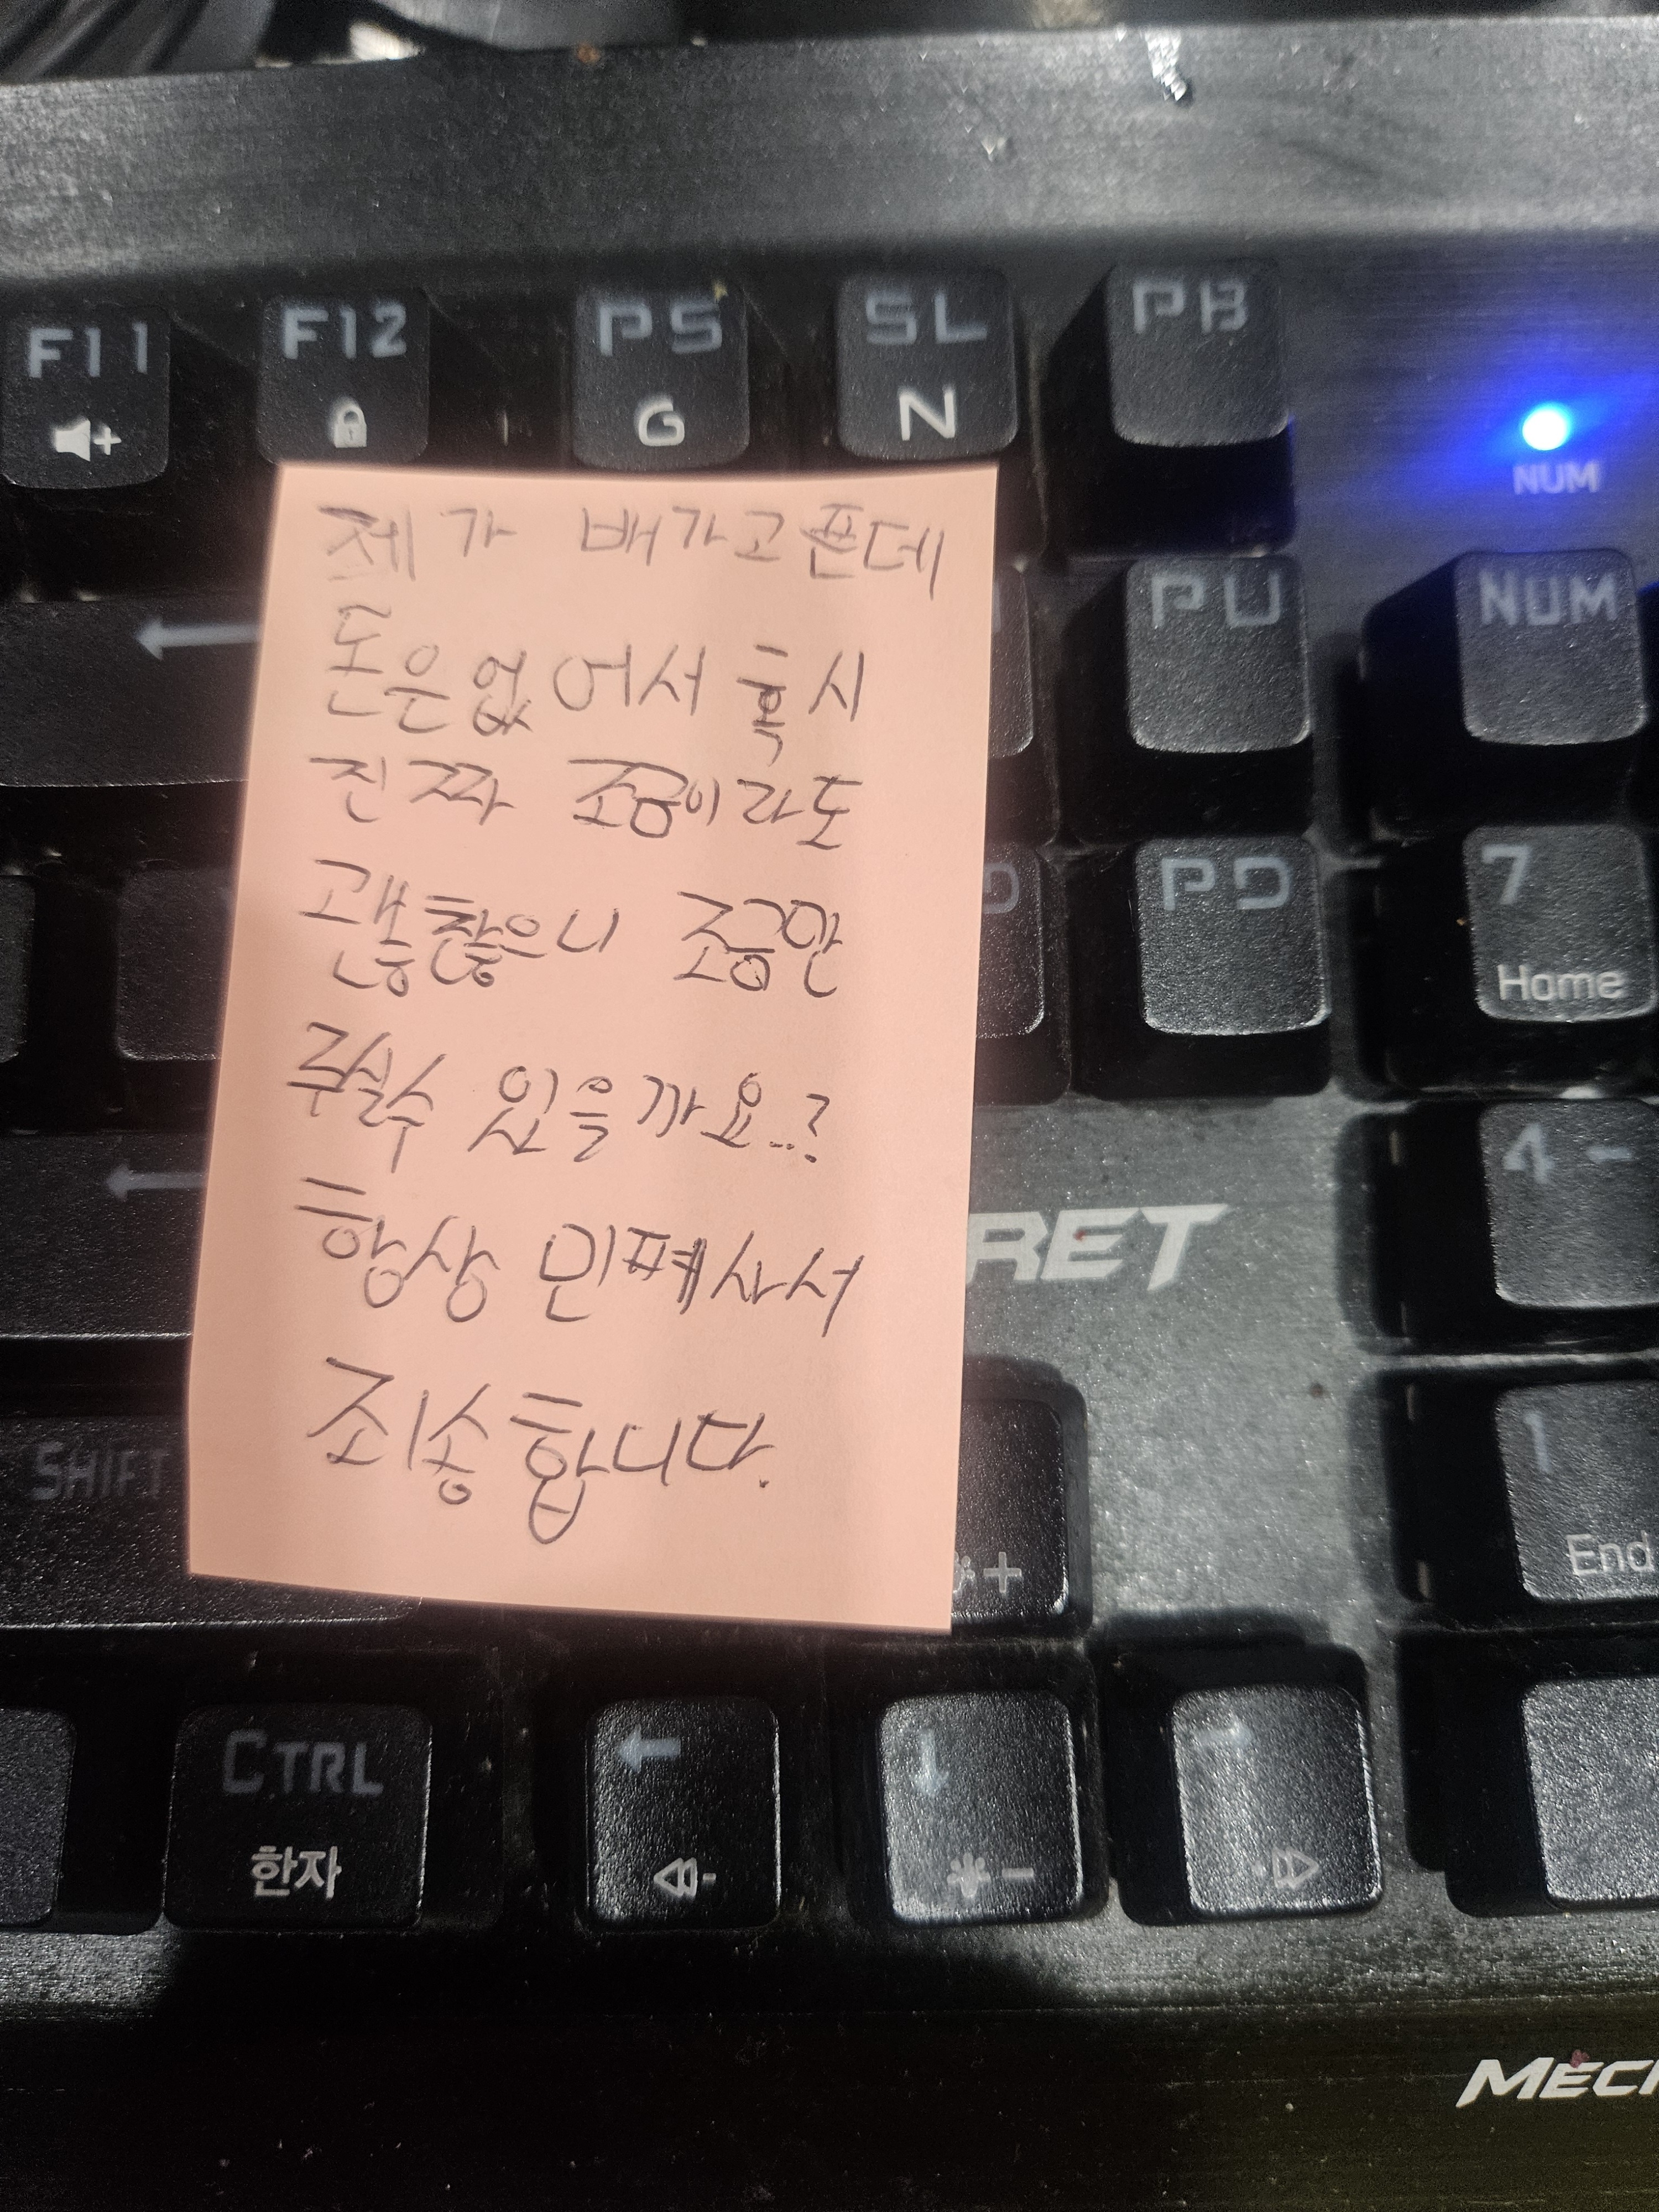 F11 F12 PS SL PB
G N
NUM
제가 배가고픈데
돈은없어서 혹시
진짜 조금이라도
괞찮으니 조금만
주실수 있을까요..?
항상 민폐사서
죄송합니다.
PU NUM
PD 7
Home
4
RET
SHIFT
1
End
CTRL
한자